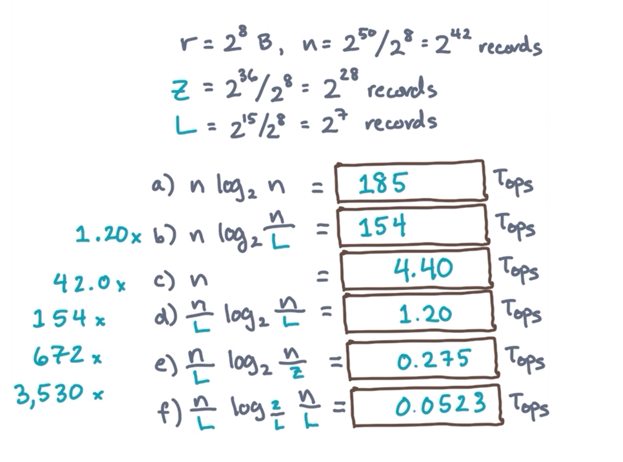 r = 2⁸ B, n = 2⁵⁰/2⁸ = 2⁴² records
Z = 2³⁶/2⁸ = 2²⁸ records
L = 2¹⁵/2⁸ = 2⁷ records
a) n log₂ n = 185 Tops
1.20x b) n log₂ n/L = 154 Tops
42.0x c) n = 4.40 Tops
154x d) n/L log₂ n/L = 1.20 Tops
672x e) n/L log₂ n/Z = 0.275 Tops
3,530x f) n/L log_{Z/L} n/L = 0.0523 Tops